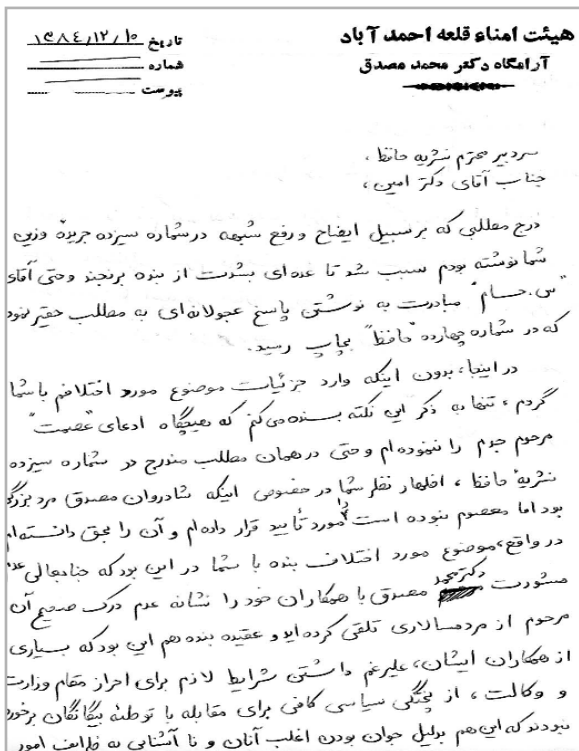 هیئت امناء قلعه احمد آباد
آرامگاه دکتر محمد مصدق
تاریخ ۱۳۸۴/۱۲/۱۰
شماره
پیوست
سردبیر محترم نشریه حافظ ،
جناب آقای دکتر امین ،
درج مطلبی که بر سبیل ایضاح و رفع شبهه در شماره سیزده جریدۀ وزین
شما نوشته بودم سبب شد تا عده‌ای بشدت از بنده برنجند و حتی آقای
"س. حسام" مبادرت به نوشتن پاسخ عجولانه‌ای به مطلب حقیر نمود
که در شماره چهارده "حافظ" بچاپ رسید.
در اینجا، بدون اینکه وارد جزئیات موضوع مورد اختلافم با شما
گردم ، تنها به ذکر این نکته بسنده می‌کنم که هیچگاه ادعای "عصمت"
مرحوم جدم را ننموده‌ام و حتی در همان مطلب مندرج در شماره سیزده
نشریۀ حافظ ، اظهار نظر شما در خصوص اینکه شادروان مصدق مرد بزرگی
بود اما معصوم نبوده است را مورد تأیید قرار داده‌ام و آن را بحق دانسته‌ام
در واقع، موضوع مورد اختلاف بنده با شما در این بود که جنابعالی عدم
مشورت دکتر محمد مصدق با همکاران خود را نشانه عدم درک صحیح آن
مرحوم از مردمسالاری تلقی کرده‌اید و عقیده بنده هم این بود که بسیاری
از همکاران ایشان، علیرغم داشتن شرایط لازم برای احراز مقام وزارت
و وکالت ، از پختگی سیاسی کافی برای مقابله با توطئه بیگانگان برخوردار
نبودند که این هم بدلیل جوان بودن اغلب آنان و نا آشنایی به ظرایف امور